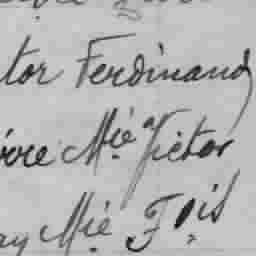 tor Ferdinand
ivre Mie Victor
ay Mie Fois